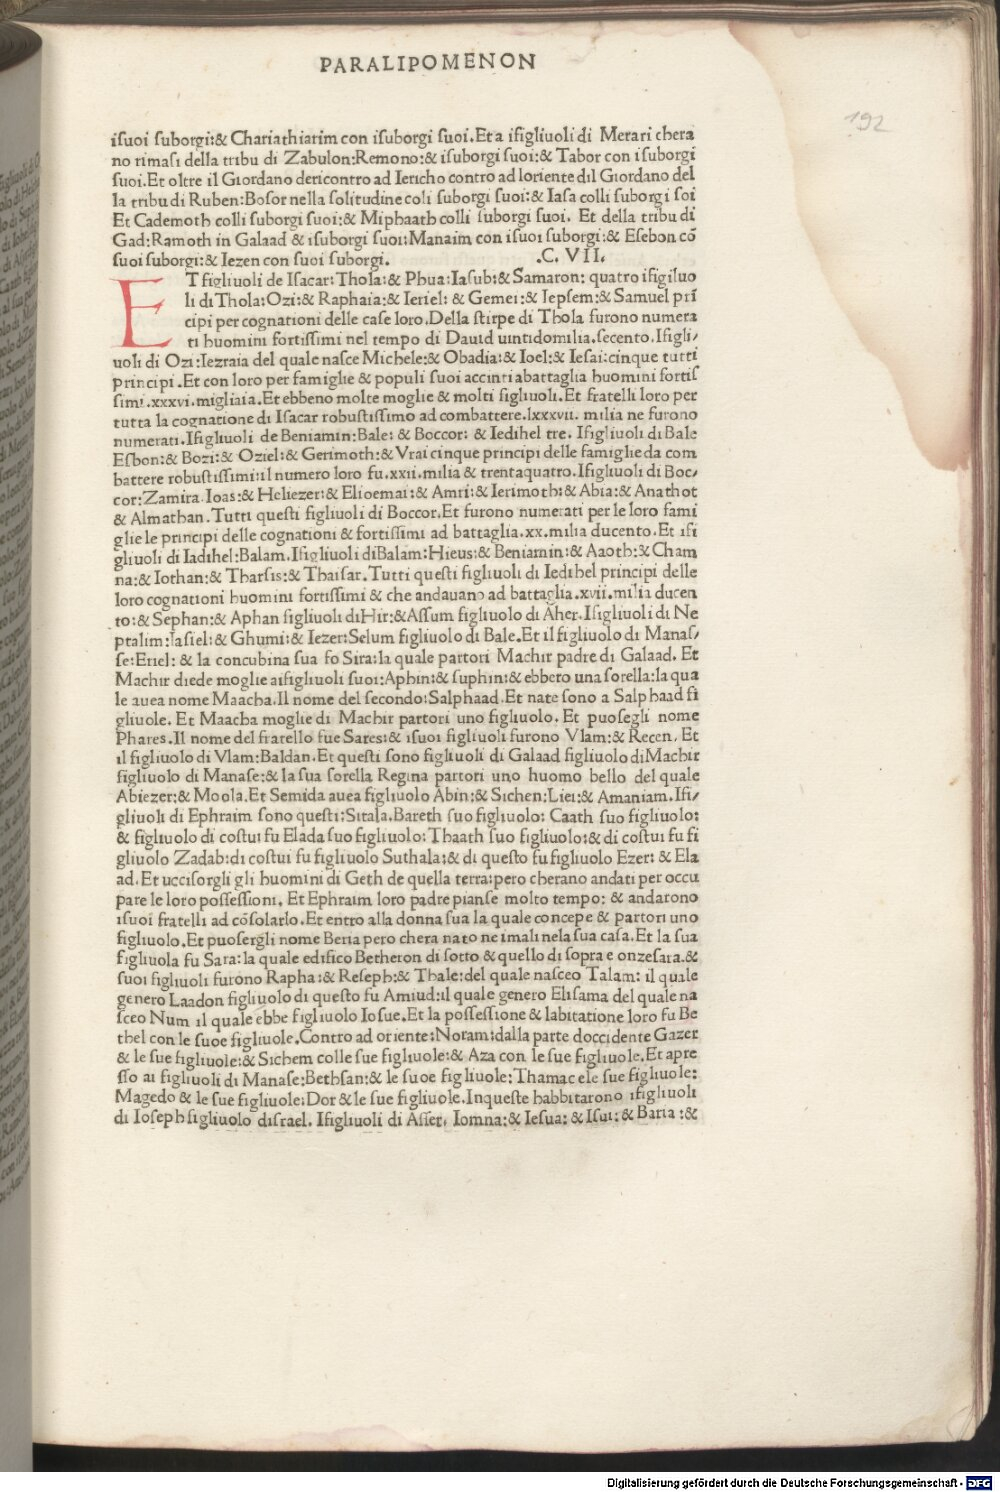 PARALIPOMENON
192
iſuoi ſuborgi:& Chariathiarim con iſuborgi ſuoi.Et a iſigliuoli di Merari chera
no rimaſi della tribu di Zabulon:Remono:& iſuborgi ſuoi:& Tabor con iſuborgi
ſuoi.Et oltre il Giordano dericontro ad Iericho contro ad loriente dil Giordano del
la tribu di Ruben:Boſor nella ſolitudine coli ſuborgi ſuoi:& Iaſa colli ſuborgi ſoi
Et Cademoth colli ſuborgi ſuoi:& Miphaath colli ſuborgi ſuoi. Et della tribu di
Gad:Ramoth in Galaad & iſuborgi ſuoi:Manaim con iſuoi ſuborgi:& Eſebon cō
ſuoi ſuborgi:& Iezen con ſuoi ſuborgi. .C. VII.
ET figliuoli de Iſacar: Thola:& Phua:Iaſub:& Samaron: quatro iſigiluo
li di Thola:Ozi:& Raphaia:& Ieriel: & Gemei:& Iepſem:& Samuel prī
cipi per cognationi delle caſe loro.Della ſtirpe di Thola furono numera
ti huomini fortiſſimi nel tempo di Dauid uintidomilia.ſecento.Iſigli/
uoli di Ozi:Iezraia del quale naſce Michele:& Obadia:& Ioel:& Ieſai:cinque tutti
principi .Et con loro per famiglie & populi ſuoi accinti abattaglia huomini fortiſ
ſimi .xxxvi.migliaia.Et ebbeno molte moglie & molti figliuoli.Et fratelli loro per
tutta la cognatione di Iſacar robuſtiſſimo ad combattere.lxxxvii. milia ne furono
numerati.Iſigliuoli de Beniamin:Bale: & Boccor: & Iedihel tre. Iſigliuoli di Bale
Eſbon:& Bozi:& Oziel:& Gerimoth:& Vrai cinque principi delle famiglie da com
battere robuſtiſſimi:il numero loro fu.xxii.milia & trentaquatro.Iſigliuoli di Boc/
cor:Zamira.Ioas:& Heliezer:& Elioemai:& Amri:& Ierimoth:& Abia:& Anathot
& Almathan.Tutti queſti figliuoli di Boccor.Et furono numerati per le loro fami
glie le principi delle cognationi & fortiſſimi ad battaglia.xx.milia ducento.Et iſi
gliuoli di Iadihel:Balam.Iſigliuoli diBalam:Hieus:& Beniamin:& Aaoth:& Cham
na:& Iothan:& Tharſis:& Thaiſar.Tutti queſti figliuoli di Iedihel principi delle
loro cognationi huomini fortiſſimi & che andauano ad battaglia.xvii.milia ducen
to:& Sephan:& Aphan figliuoli diHir:&Aſſum figliuolo di Aher.Iſigliuoli di Ne
ptalim:Iaſiel:& Ghumi:& Iezer:Selum figliuolo di Bale.Et il figliuolo di Manaſ/
ſe:Eriel: & la concubina ſua fo Sira:la quale partori Machir padre di Galaad. Et
Machir diede moglie aiſigliuoli ſuoi:Aphin:& ſuphin:& ebbero una ſorella:la qua
le auea nome Maacha.Il nome del ſecondo:Salphaad.Et nate ſono a Salphaad fi
gliuole. Et Maacha moglie di Machir partori uno figliuolo. Et puoſegli nome
Phares.Il nome del fratello fue Sares:& iſuoi figliuoli furono Vlam:& Recen. Et
il figliuolo di Vlam:Baldan.Et queſti ſono figliuoli di Galaad figliuolo diMachir
figliuolo di Manaſe:& la ſua ſorella Regina partori uno huomo bello del quale
Abiezer:& Moola.Et Semida auea figliuolo Abin:& Sichen:Liei:& Amaniam.Iſi/
gliuoli di Ephraim ſono queſti:Sitala.Bareth ſuo figliuolo: Caath ſuo figliuolo:
& figliuolo di coſtui fu Elada ſuo figliuolo:Thaath ſuo figliuolo:& di coſtui fu fi
gliuolo Zadab:di coſtui fu figliuolo Suthala:& di queſto fu figliuolo Ezer: & Ela
ad.Et ucciſorgli gli huomini di Geth de quella terra:pero cherano andati per occu
pare le loro poſſeſſioni. Et Ephraim loro padre pianſe molto tempo: & andarono
iſuoi fratelli ad cōſolarlo.Et entro alla donna ſua la quale concepe & partori uno
figliuolo.Et puoſergli nome Beria pero chera nato ne imali nela ſua caſa.Et la ſua
figliuola fu Sara:la quale edifico Betheron di ſotto & quello di ſopra e onzeſara.&
ſuoi figliuoli furono Rapha:& Reſeph:& Thale:del quale naſceo Talam: il quale
genero Laadon figliuolo di queſto fu Amiud:il quale genero Eliſama del quale na
ſceo Num il quale ebbe figliuolo Ioſue.Et la poſſeſſione & labitatione loro fu Be
thel con le ſuoe figliuole.Contro ad oriente:Noram:dalla parte doccidente Gazer
& le ſue figliuole:& Sichem colle ſue figliuole:& Aza con le ſue figliuole.Et apre
ſſo ai figliuoli di Manaſe:Bethſan:& le ſuoe figliuole:Thamac ele ſue figliuole:
Magedo & le ſue figliuole:Dor & le ſue figliuole.Inqueſte habbitarono iſigliuoli
di Ioſeph figliuolo diſrael. Iſigliuoli di Aſſer. Iomna:& Ieſua:& Iſui:& Baria:&
Digitalisierung gefördert durch die Deutsche Forschungsgemeinschaft - DFG